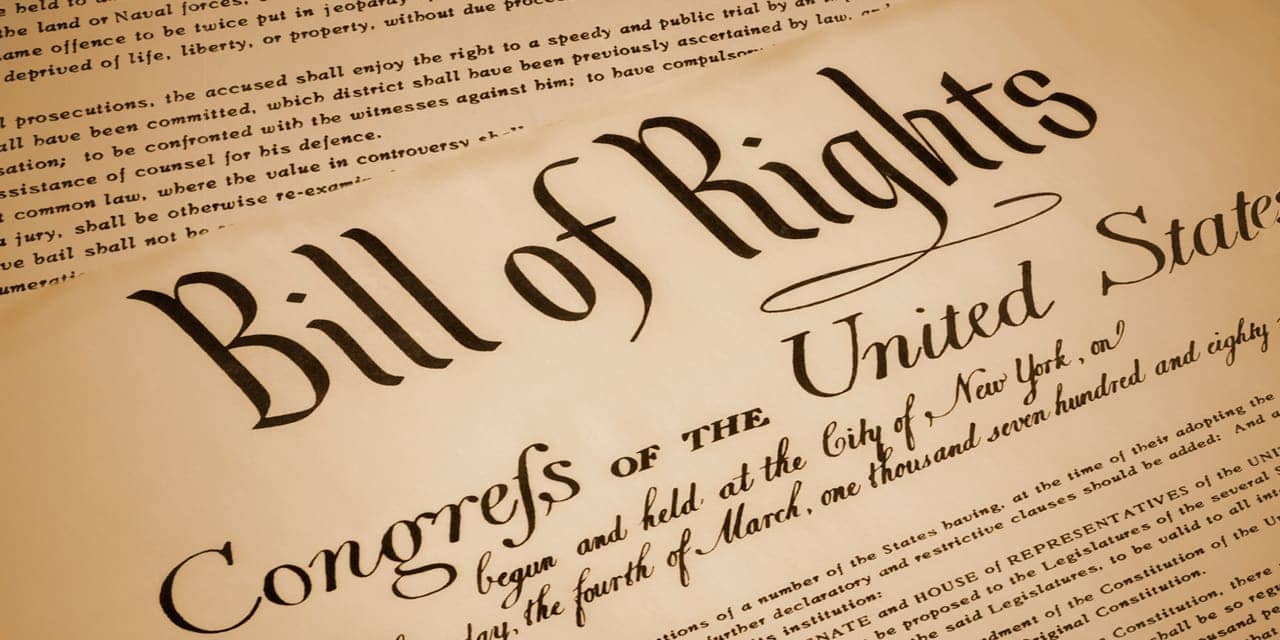 be held to
the land or Naval forces,
same offence to be twice put in jeopardy
deprived of life, liberty, or property, without due
prosecutions, the accused shall enjoy the right to a speedy and public trial by an
all have been committed, which district shall have been previously ascertained by law,
sation; to be confronted with the witnesses against him; to have compulsor
ssistance of counsel for his defence.
t common law, where the value in controversy
a jury, shall be otherwise re-exami
ve bail shall not be
umerati
Bill of Rights
Congreſs OF THE United States
begun and held at the City of New York, on
day, the fourth of March, one thousand seven hundred and eighty
tions of a number of the States having, at the time of their adopting the
further declaratory and restrictive clauses should be added: And
institution:
NATE and HOUSE of REPRESENTATIVES of the UNI
be proposed to the Legislatures of the several
he said Legislatures, to be valid to all int
dment of the Constitution of the U
ginal Constitution.
Constitution, there
hall be so reg
sand